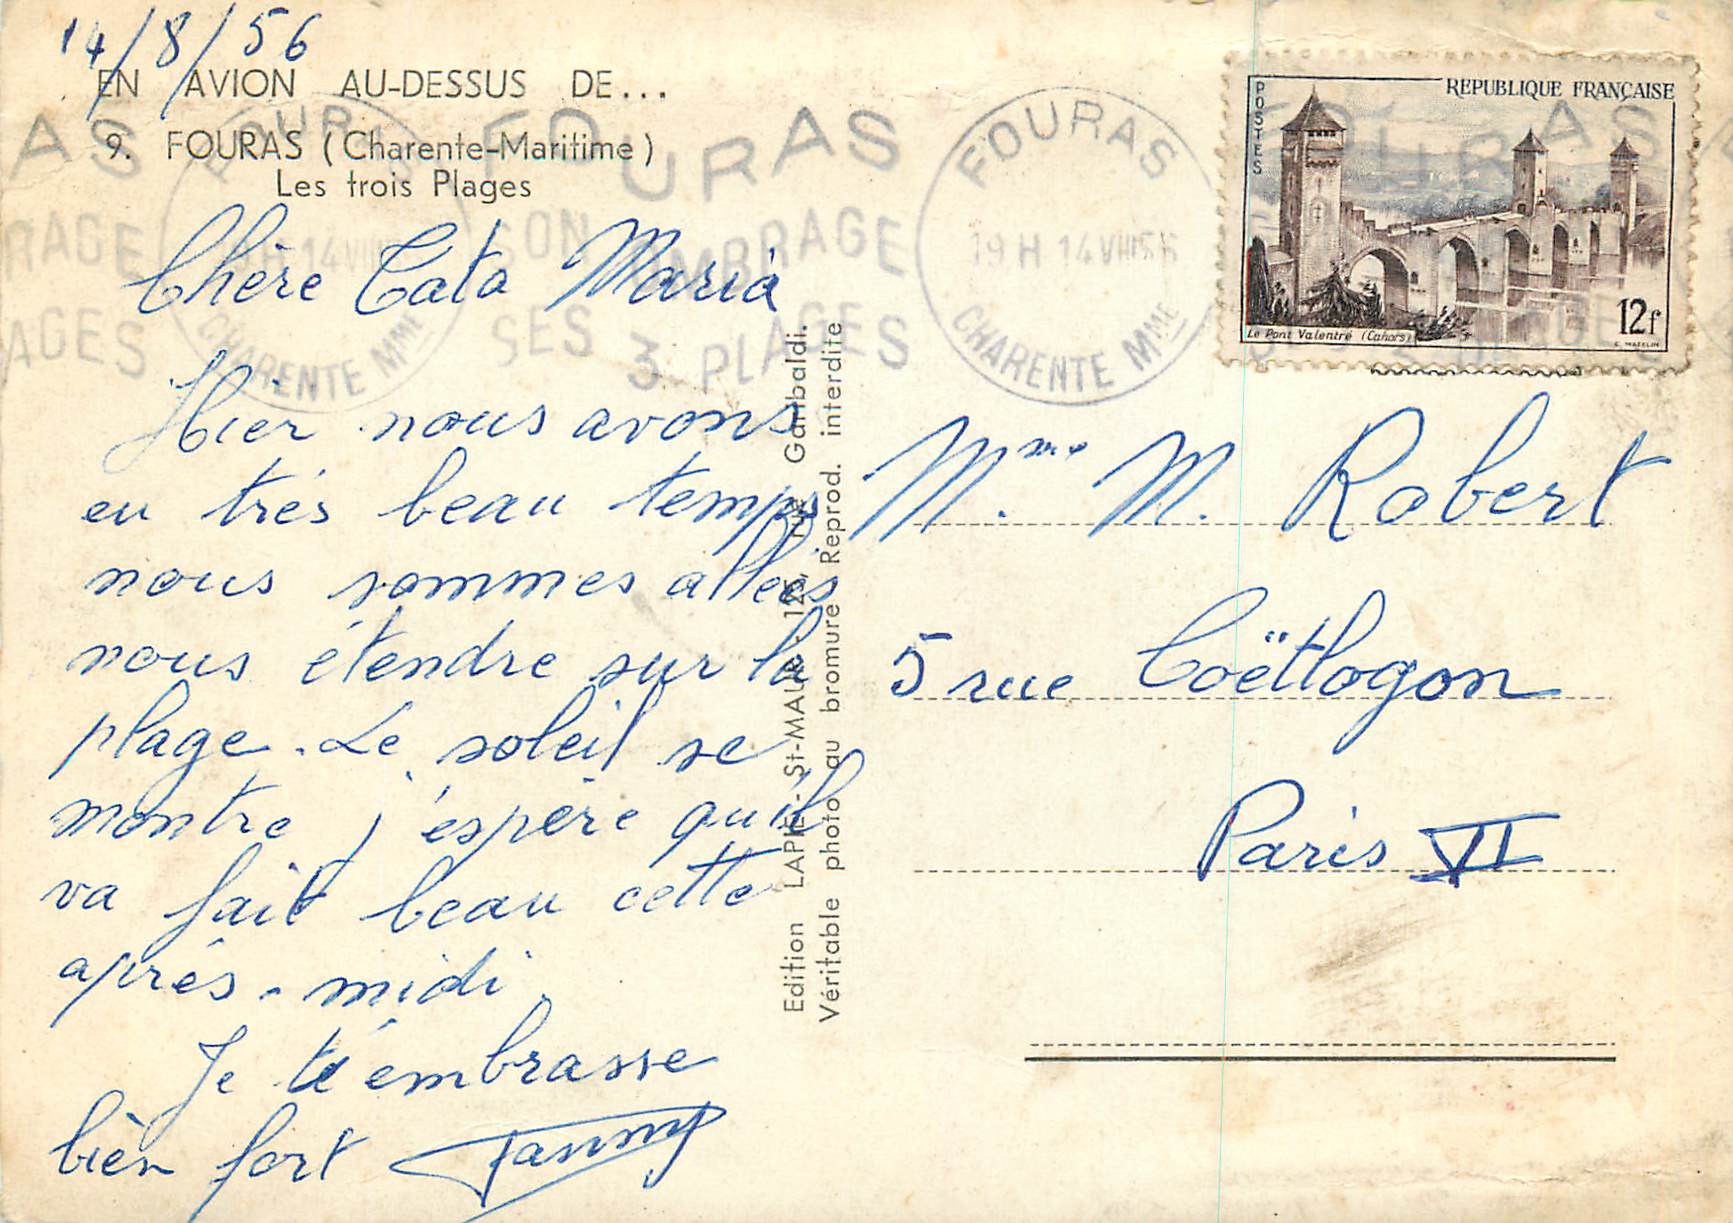 14/8/56
EN AVION AU-DESSUS DE...
9. FOURAS (Charente-Maritime)
Les trois Plages
Chère Tata Maria
Hier nous avons
eu trés beau temps
nous sommes allées
nous étendre sur la
plage. Le soleil se
montre j'espère qu'il
va fait beau cette
aprés-midi.
Je t'embrasse
bien fort Fanny
Edition LAPIE - St-MAUR - 125, rue Garibaldi.
Véritable photo au bromure Reprod. interdite
FOURAS
SON OMBRAGE
SES 3 PLAGES
FOURAS
19 H 14 VIII 56
CHARENTE Mme
POSTES
REPUBLIQUE FRANÇAISE
Le Pont Valentré (Cahors)
12f
C. MAZELIN
Mme. M. Robert
5 rue Coëtlogon
Paris VI